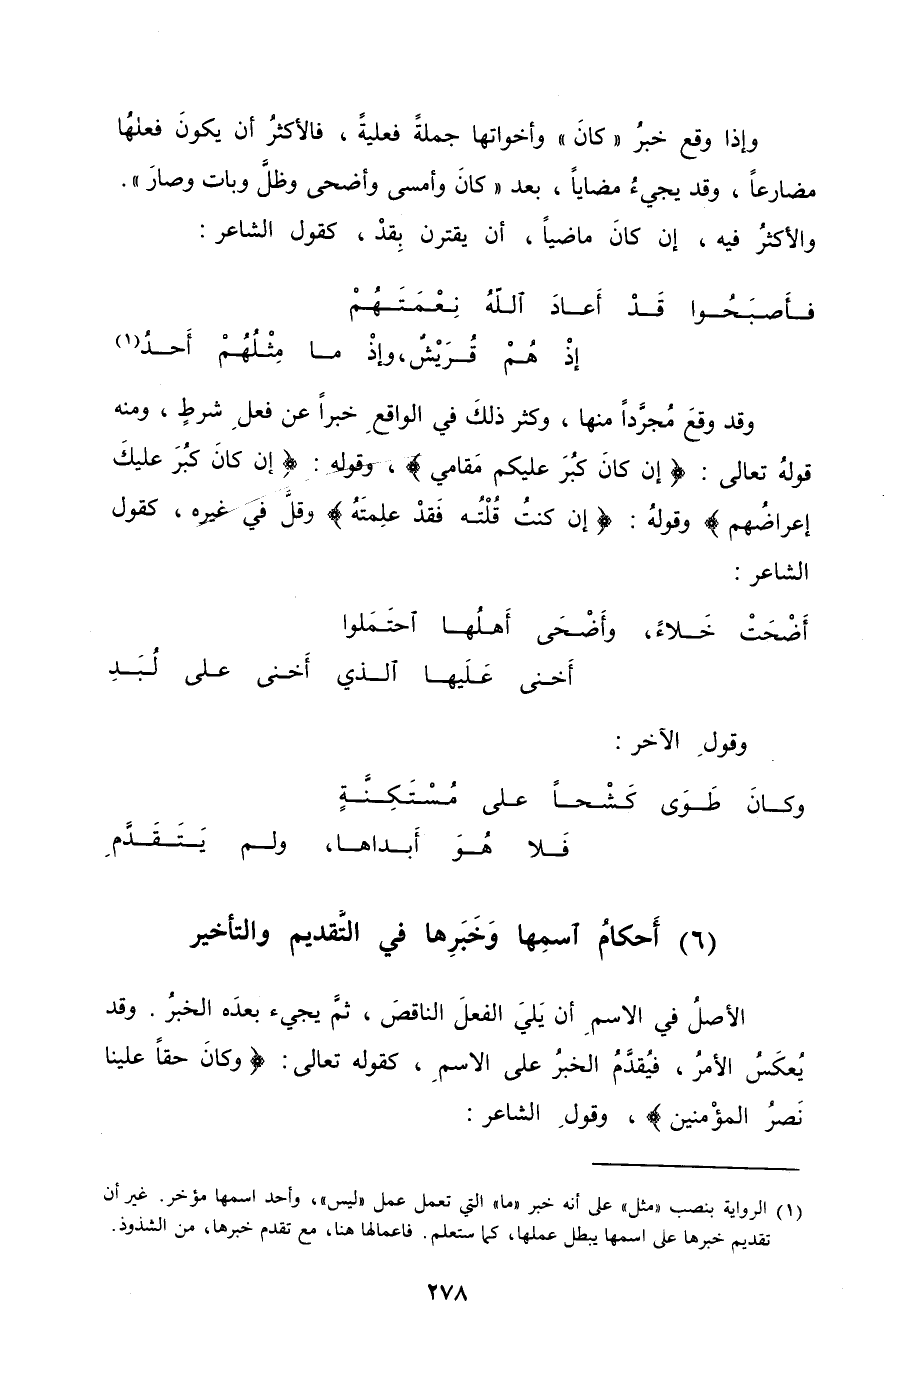 وإذا وقع خبرُ « كانَ » وأخواتها جملةً فعليةً ، فالأكثرُ أن يكونَ فعلهُا
مضارعاً ، وقد يجيءُ مضاياً ، بعد « كانَ وأمسى وأضحى وظلَّ وبات وصارَ » .
والأكثرُ فيه ، إن كانَ ماضياً ، أن يقترن بِقدْ ، كقول الشاعر :
فـأَصبَـحُـوا قَـدْ أَعـادَ ٱللّهُ نِـعْـمَـتَـهُـمْ
إذْ هُـمْ قُـرَيْشٌ، وإذْ مـا مِثْـلُهُـمْ أَحـدُ(١)
وقد وقعَ مُجرَّداً منها ، وكثر ذلكَ في الواقعِ خبراً عن فعلِ شرطٍ ، ومنه
قولهُ تعالى : ﴿ إن كانَ كبُرَ عليكم مَقامي ﴾ ، وقوله : ﴿ إن كانَ كبُرَ عليكَ
إعراضُهم ﴾ وقولهُ : ﴿ إن كنتُ قُلْتُـه فَقدْ علِمتَهُ ﴾ وقلَّ في غيره ، كقول
الشاعر :
أَضْحَتْ خَـلاءً، وأَضْـحَى أَهـلُهـا ٱحتَـمَلوا
أَخـنى عَـلَيهـا ٱلـذي أَخنـى علـى لُبَـدِ
وقولِ الآخر :
وكـانَ طَـوَى كَـشْـحـاً علـى مُـسْـتَـكِـنَّـةٍ
فَـلا هُـوَ أَبـداهـا، ولـم يَـتَـقَـدَّمِ
(٦) أَحكامُ ٱسمِها وَخَبَرِها في التَّقديم والتأخير
الأصلُ في الاسمِ أن يَليَ الفعلَ الناقصَ ، ثمَّ يجيء بعدَه الخبرُ . وقد
يُعكَسُ الأمرُ ، فيُقدَّمُ الخبرُ على الاسمِ ، كقوله تعالى : ﴿ وكانَ حقاً علينا
نَصرُ المؤمنين ﴾ ، وقولِ الشاعر :
(١) الرواية بنصب «مثل» على أنه خبر «ما» التي تعمل عمل «ليس»، وأحد اسمها مؤخر. غير أن
تقديم خبرها على اسمها يبطل عملها، كما ستعلم. فاعمالها هنا، مع تقدم خبرها، من الشذوذ.
٢٧٨